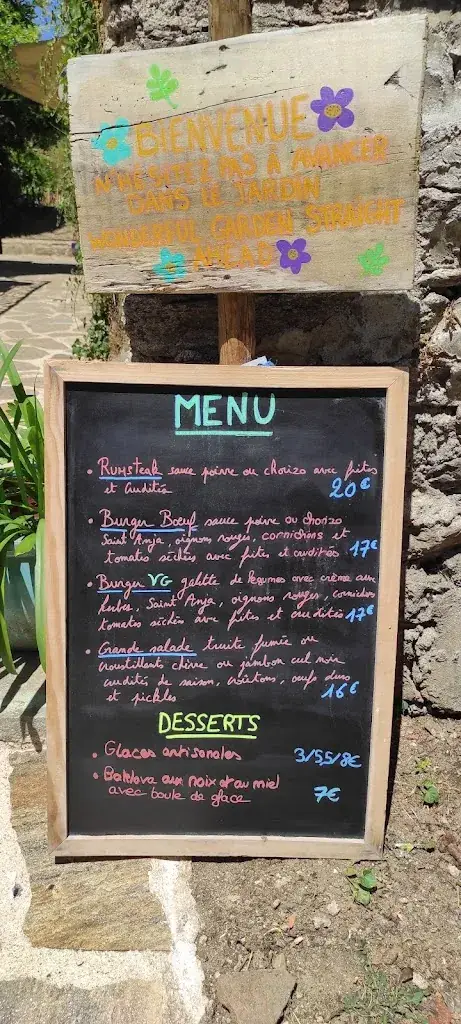 BIENVENUE
N'HESITEZ PAS À AVANCER
DANS LE JARDIN
WONDERFUL GARDEN STRAIGHT
AHEAD
MENU
• Rumsteak sauce poivre ou chorizo avec frites
et crudités 20€
• Burger Bœuf sauce poivre ou chorizo
Saint Anja, oignons rouges, cornichons et
tomates séchées avec frites et crudités 17€
• Burger VG galette de légumes avec crème aux
herbes, Saint Anja, oignons rouges, cornichons
tomates séchées avec frites et crudités 17€
• Grande salade truite fumée ou
croustillants chèvre ou jambon cul noir
crudités de saison, croûtons, oeufs durs
et pickles 16€
DESSERTS
• Glaces artisanales 3/5,5/8€
• Baklava aux noix et au miel
avec boule de glace 7€